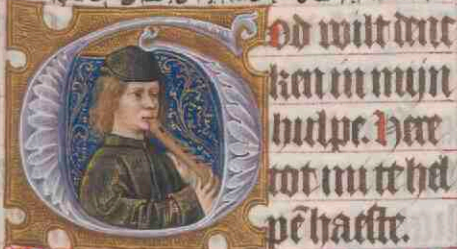 God wilt denc
ken in mijn
hulpe. Here
tot mi te hel
pē haeste.